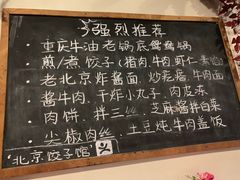 强烈推荐
·重庆牛油老锅底鸳鸯锅
·煎/煮 饺子(猪肉、牛肉、虾仁、素馅)
·老北京炸酱面、炒疙瘩、牛肉面
·酱牛肉、干炸小丸子、肉皮冻
·肉饼、拌三丝、芝麻酱拌白菜
·尖椒肉丝、土豆炖牛肉盖饭
"北京饺子馆"